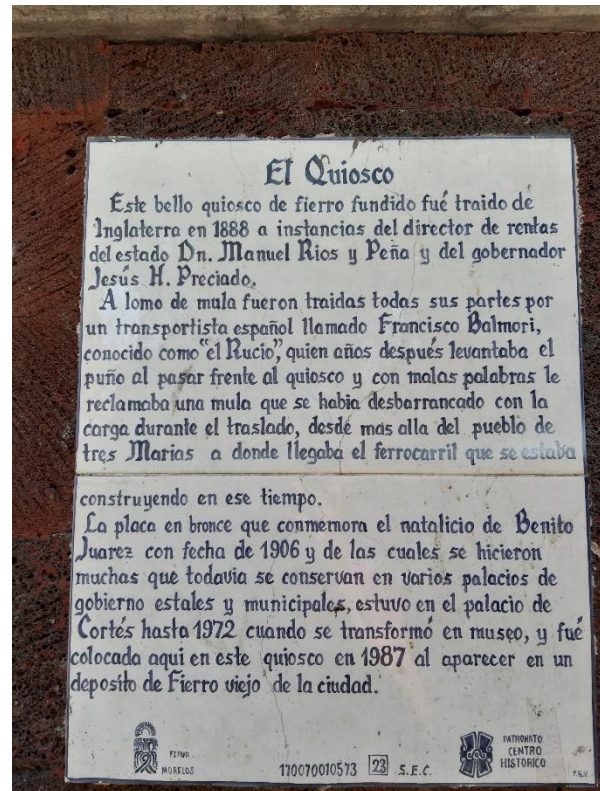 El Quiosco
Este bello quiosco de fierro fundido fué traido de
Inglaterra en 1888 a instancias del director de rentas
del estado Dn. Manuel Rios y Peña y del gobernador
Jesús H. Preciado.
A lomo de mula fueron traidas todas sus partes por
un transportista español llamado Francisco Balmori,
conocido como "el Rucio", quien años después levantaba el
puño al pasar frente al quiosco y con malas palabras le
reclamaba una mula que se habia desbarrancado con la
carga durante el traslado, desdé mas alla del pueblo de
tres Marias a donde llegaba el ferrocarril que se estaba
construyendo en ese tiempo.
La placa en bronce que conmemora el natalicio de Benito
Juarez con fecha de 1906 y de las cuales se hicieron
muchas que todavia se conservan en varios palacios de
gobierno estales y municipales, estuvo en el palacio de
Cortés hasta 1972 cuando se transformó en museo, y fué
colocada aqui en este quiosco en 1987 al aparecer en un
deposito de Fierro viejo de la ciudad.
MORELOS
170070010573 23 S.E.C.
PATRONATO
CENTRO
HISTORICO